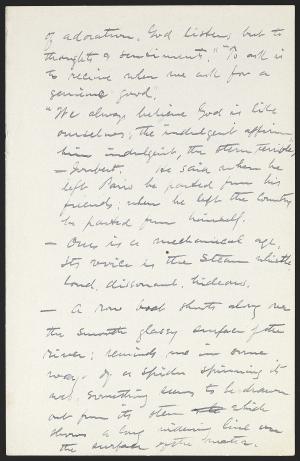 of adoration. God listens but to
thoughts & sentiments." "To ask is
to receive when we ask for a
genuine good."
"We always believe God is like
ourselves; the indulgent affirm
him indulgent, the stern terrible,"
— Joubert. He said when he
left Paris he parted from his
friends; when he left the country
he parted from himself.
— Ours is a mechanical age.
Its voice is the steam whistle
loud, dissonant, hideous.
— A row boat shoots along over
the smooth glassy surface of the
river; reminds me in some
way of a spider spinning its
web. something seems to be drawn
out from its stern which
draws a long widening line over
the surface of the water.